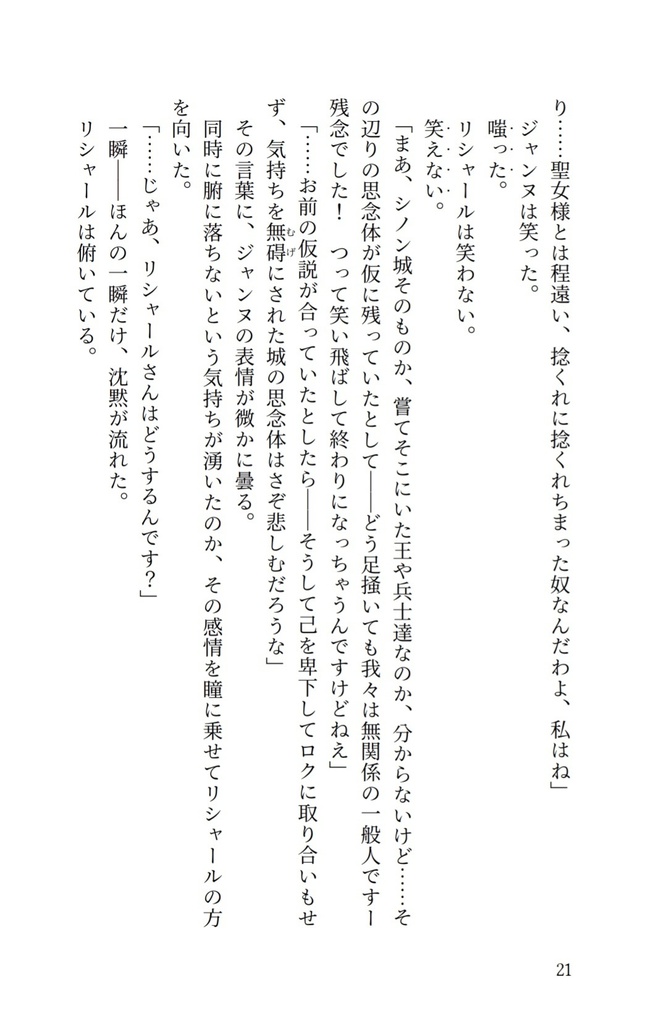 り……聖女様とは程遠い、捻くれに捻くれちまった奴なんだわよ、私はね」
ジャンヌは笑った。
嗤った。
リシャールは笑わない。
笑えない。
「まあ、シノン城そのものか、嘗てそこにいた王や兵士達なのか、分からないけど……そ
の辺りの思念体が仮に残っていたとして――どう足掻いても我々は無関係の一般人ですー
残念でした！　つって笑い飛ばして終わりになっちゃうんですけどねえ」
「……お前の仮説が合っていたとしたら――そうして己を卑下してロクに取り合いもせ
ず、気持ちを無碍にされた城の思念体はさぞ悲しむだろうな」
その言葉に、ジャンヌの表情が微かに曇る。
同時に腑に落ちないという気持ちが湧いたのか、その感情を瞳に乗せてリシャールの方
を向いた。
「……じゃあ、リシャールさんはどうするんです？」
一瞬――ほんの一瞬だけ、沈黙が流れた。
リシャールは俯いている。
21